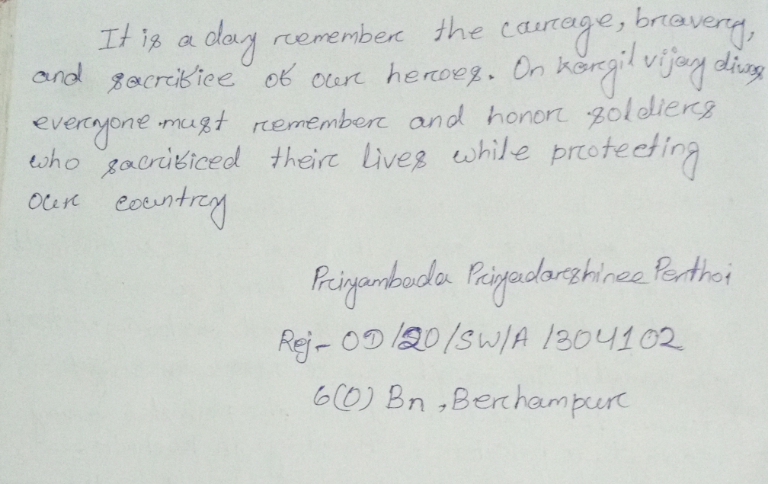 It is a day remember the courage, bravery,
and sacrifice of our heroes. On kargil vijay diwas
everyone must remember and honor soldiers
who sacrificed their lives while protecting
our country
Priyambada Priyadarshinee Penthoi
Rej- OD/20/SW/A/304102
6(O) Bn, Berhampur